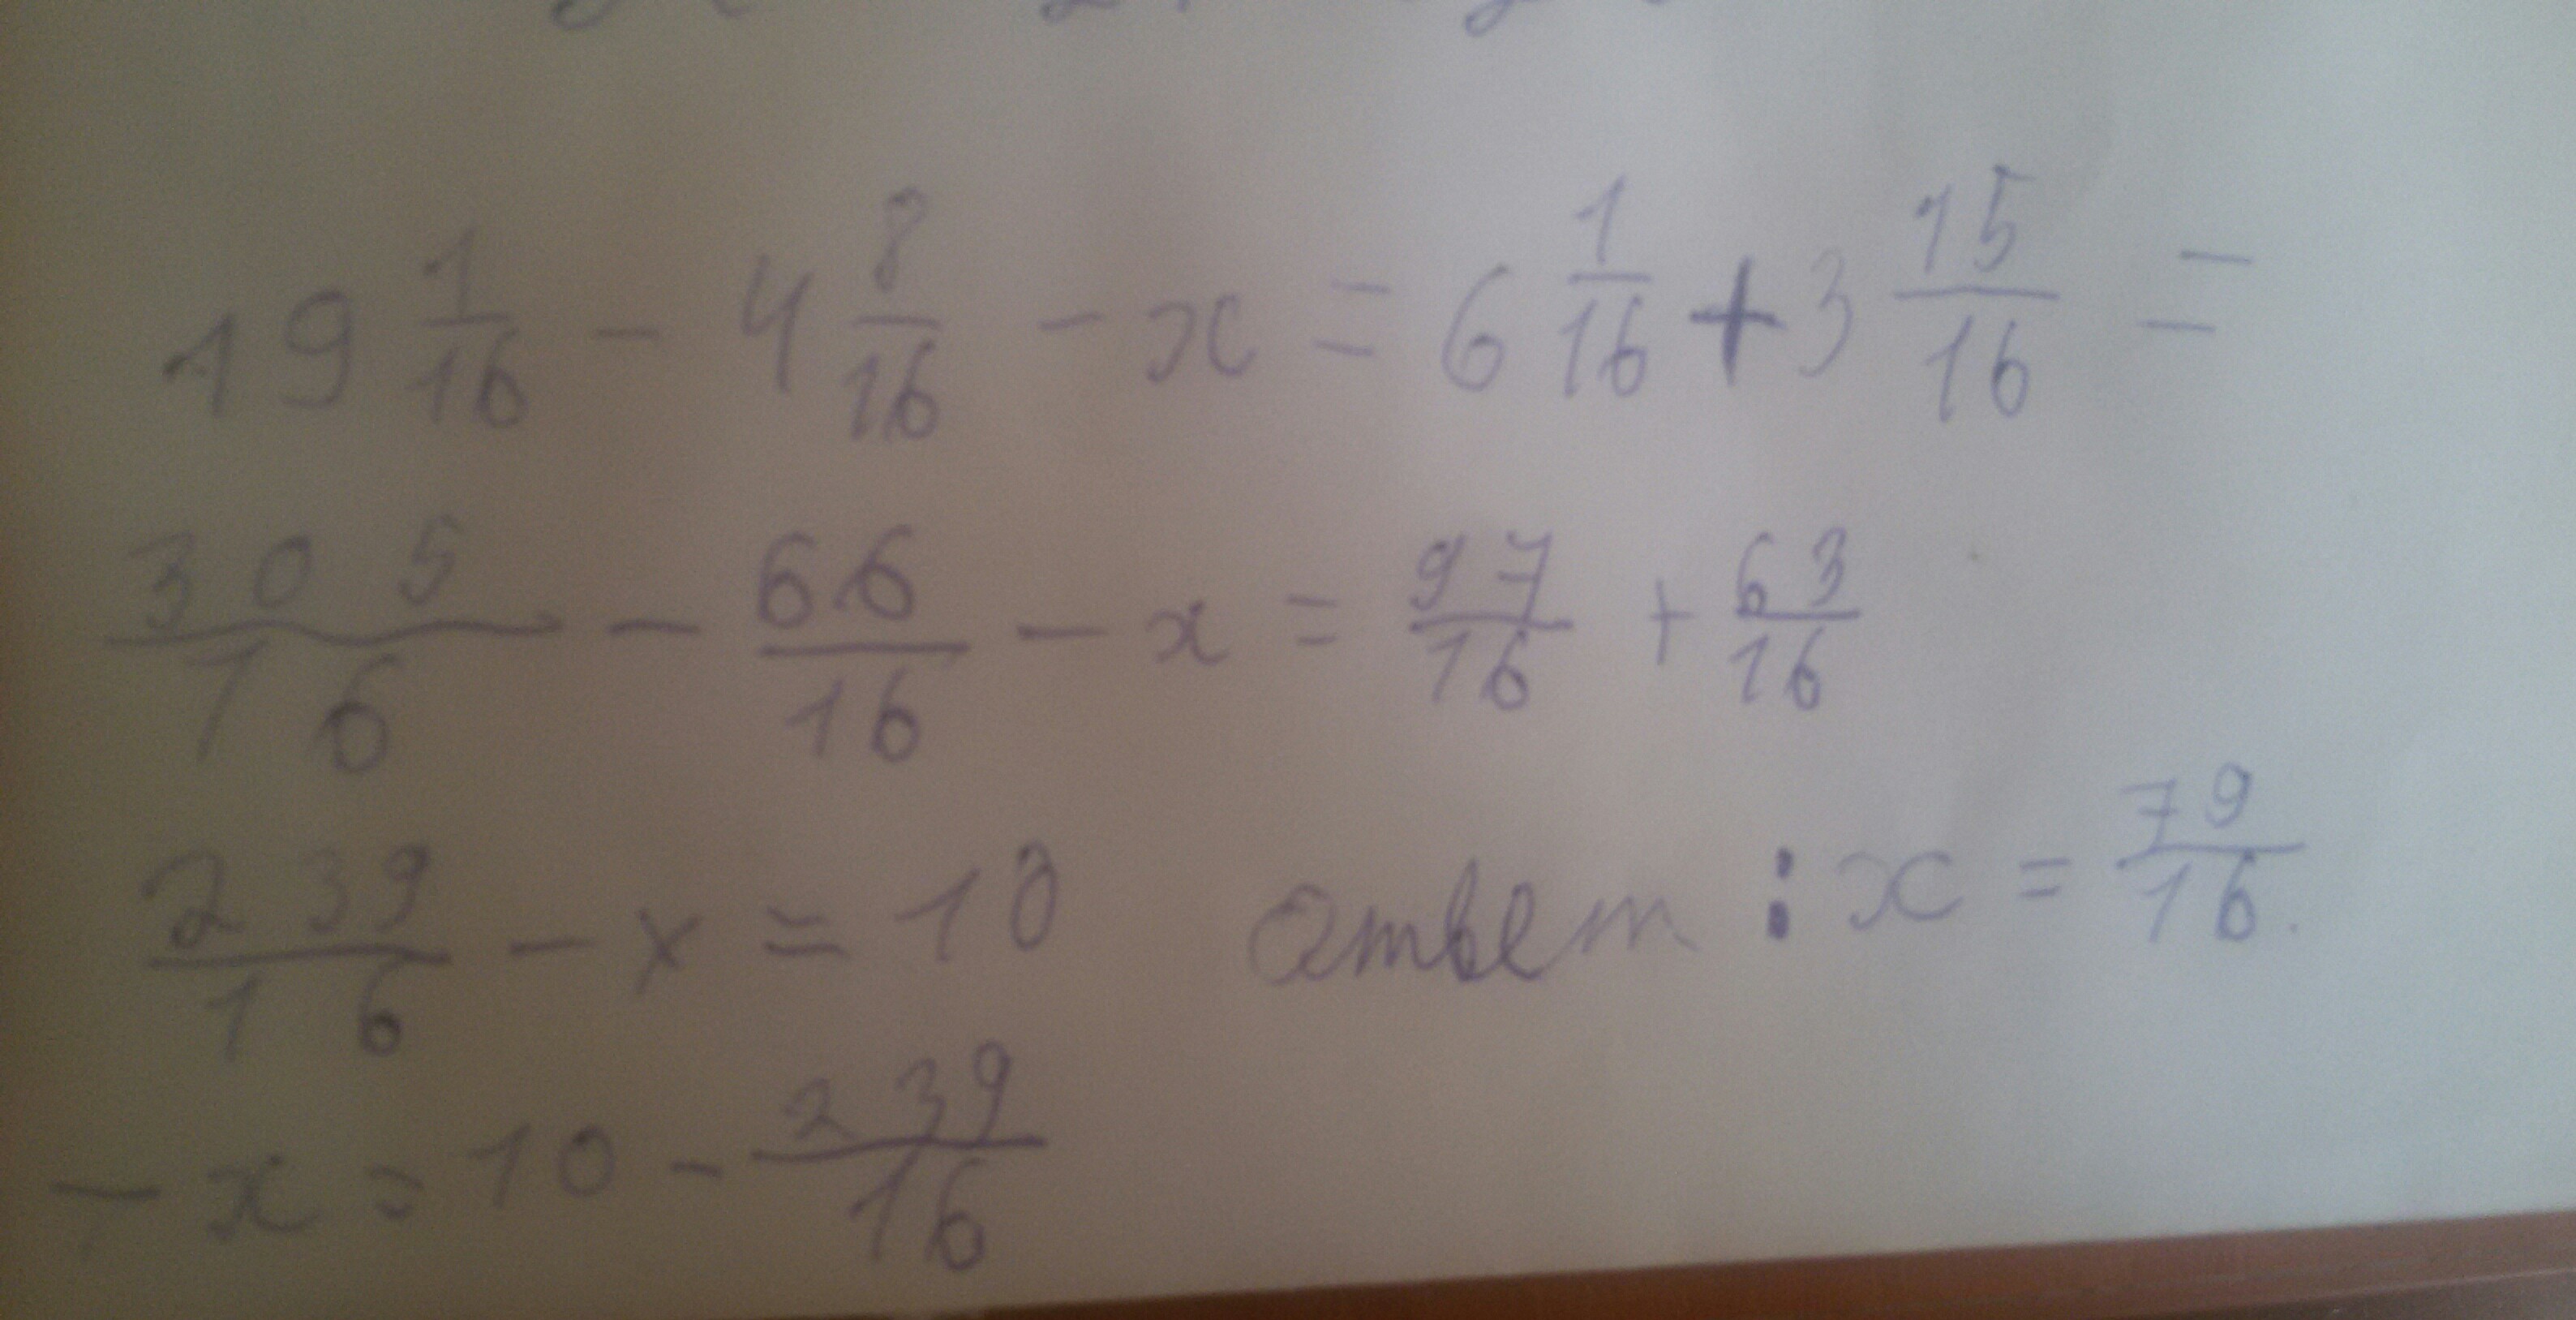 19 1/16 - 4 8/16 - x = 6 1/16 + 3 15/16 =
305/16 - 66/16 - x = 97/16 + 63/16
239/16 - x = 10 ответ : x = 79/16.
- x = 10 - 239/16